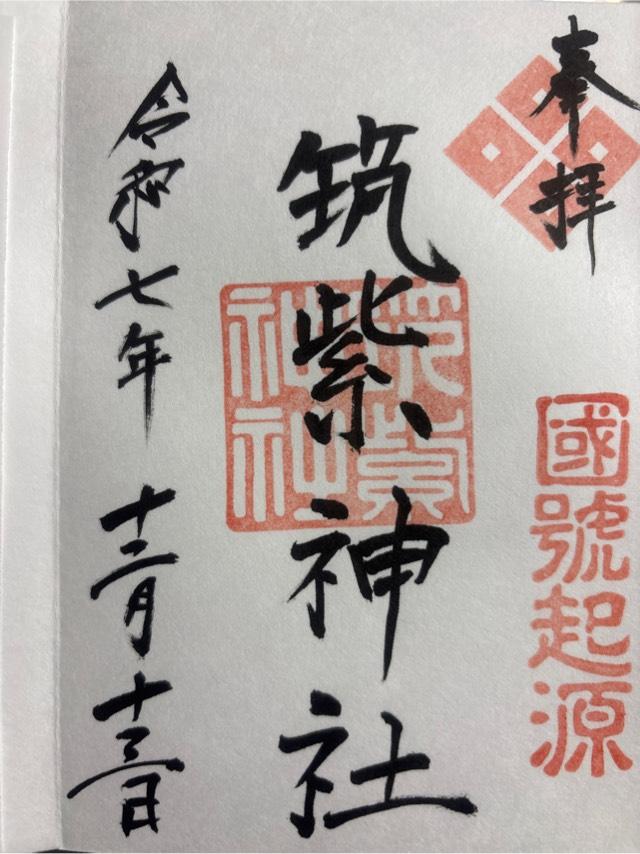 奉拝
國號起源
筑紫神社
筑紫
神社
令和七年 十二月 十三日